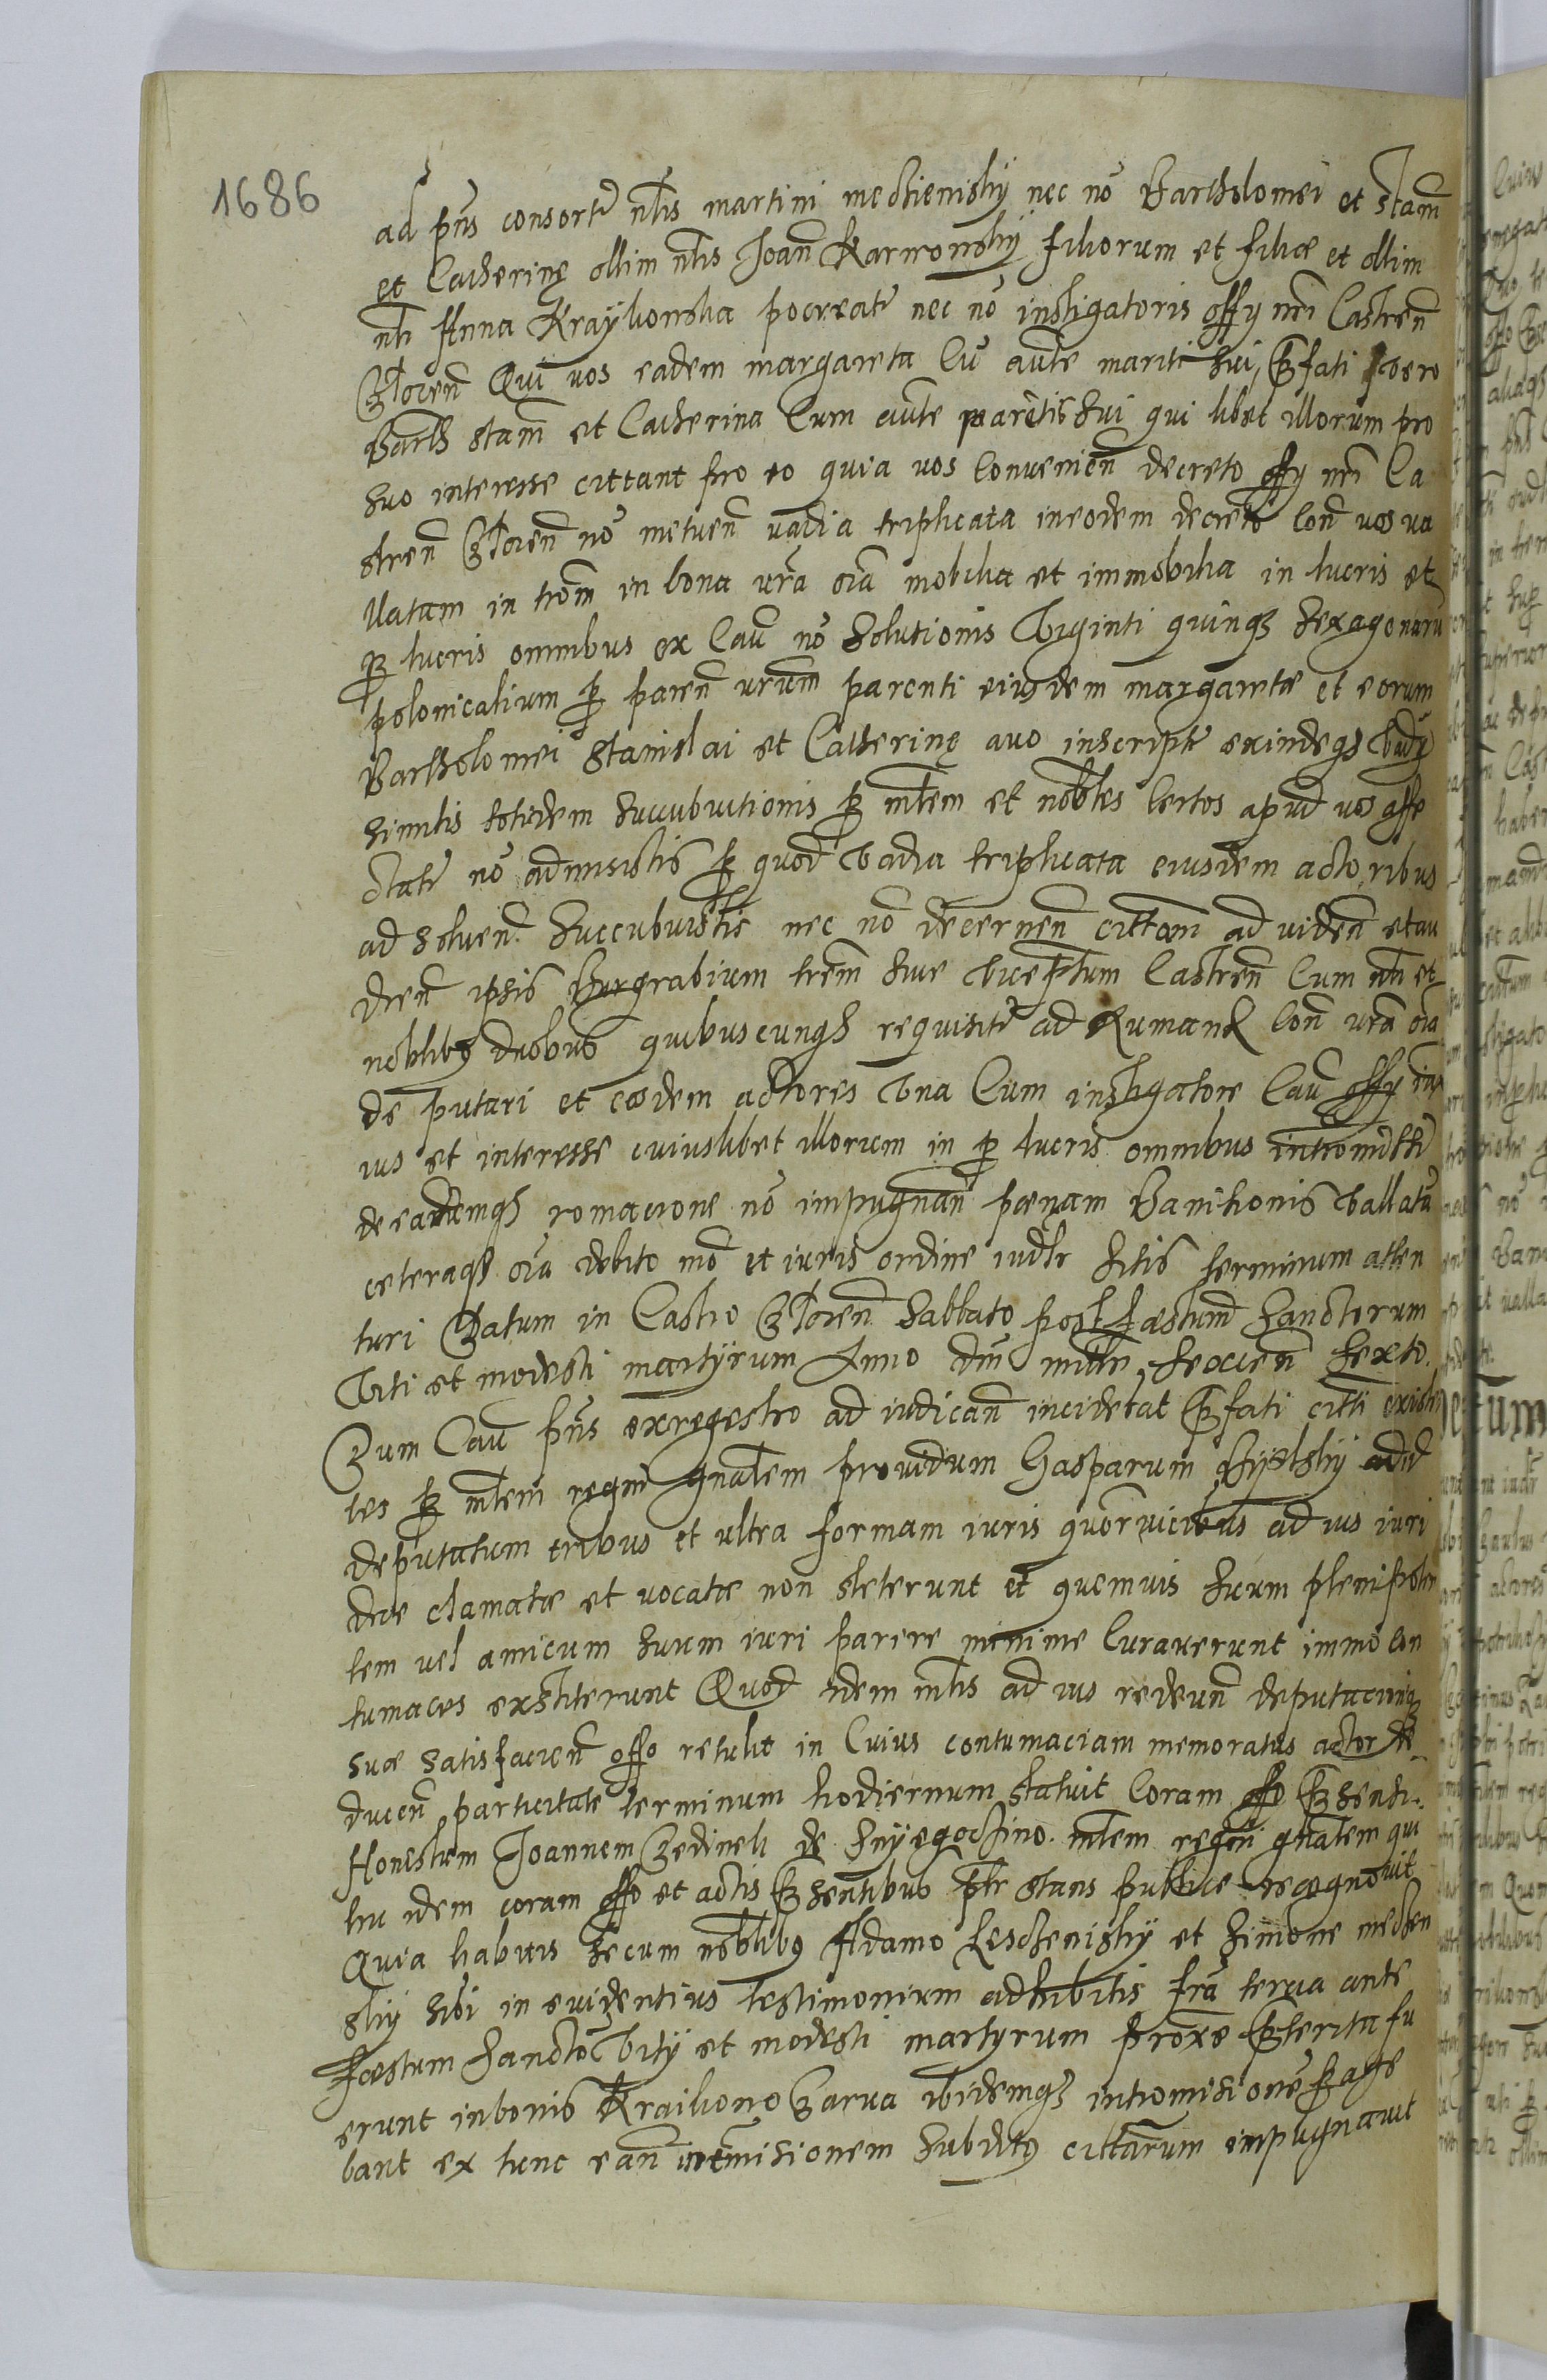 1686
ad pñs consorte nłis martini mechieniskÿ nec nõ Bartholomei et Stañi
et Catherinę ollim nłis Joañ Karwowskÿ filiorum et filiæ et ollim
nłi Anna Kraÿkowska procreate nec nõ instigatoris offÿ nri Castreñ
Qui vos eadem margareta Cũ auñte mariti sui, p̃fati vero
Barth Stañ et Catherina Cum auñte parẽtis sui qui libet illorum pro
suo interesse cittant pro eo quia vos Convenieñ decreto offÿ nri Ca
streñ nõ metueñ vadia triplicata in eodem decreto Coñ vos va
llatam in trom in bona vra oia mobilia et immobilia in lucris et
per lucris omnibus ex Cau nõ Solutionis Viginti quinq sexagenaru
polonicalium per pareñ vrum parenti eiusdem margaretæ et eorum
Bartholomei Stanislai et Catherinę avo inscripte exindeq Vadÿ
similis totidem succubuitionis per młem et nobłes Certos apud vos affe
ctate nõ admisistis per quod Vadia triplicata eiusdem actoribus
ad solvend. Succubuistis nec nõ decerneñ cittam ad videñ et au
dieñ ipsis Burgrabium trem sive Vice Castreñ Cum nłi et
noblibq duobus quibuscunqs requisite ad Rumand Coñ vra oia
deputari et eosdem actores Una Cum instigatore Cau offÿ iux
ius et interesse cuiuslibet illorum in per lucris omnibus intromitti
de eademqs romacione nõ impugnañ pœnam Banitionis Vallatũ
ceteraqs oia debito mõ et iuris ordine iudtr Sitis terminum atten
turi Datum in Castro Sabbato post fæstum Sanctorum
Viti et modesti martÿrum Anno dñi millm sexceñ sexto.
Dum Cau pñs ex regestro ad iudicañ incidebat p̃fati citti existe
tes per młem regni gnałem providum Gasparum adid
deputatum tribus et ultra formam iuris quor vicibus ad ius iuri
dice clamatæ et vocatæ non steterunt et quemvis suum plenipoten
tem vel amicum suum iuri parere minime Curaverunt immo Con
tumaces exstiterunt Quod idem młis ad ius redeuñ deputacioniq
suæ satisfacieñ offo retulit in Cuius contumaciam memoratus actor de
duceñ particitate terminum hodiernum statuit Coram offo p̃senti.
Honestum Joannem Bedinek de młem regni gnałem qui
hic idem coram offo et actis p̃sentibus pltr stans publice recognovit
Quia habitis secum noblibq Adamo Leschenishÿ et Simone mechen
skÿ sibi in evidentius testimonium adhibitis fra tercia ante
fæstum sancto Vitÿ et modesti martyrum proxe p̃terita fu
erunt in bonis Kraikowo Darva ibidemqs intromisionẽ
bant ex tunc eañ intmisionem subditq cittarum impugnavit